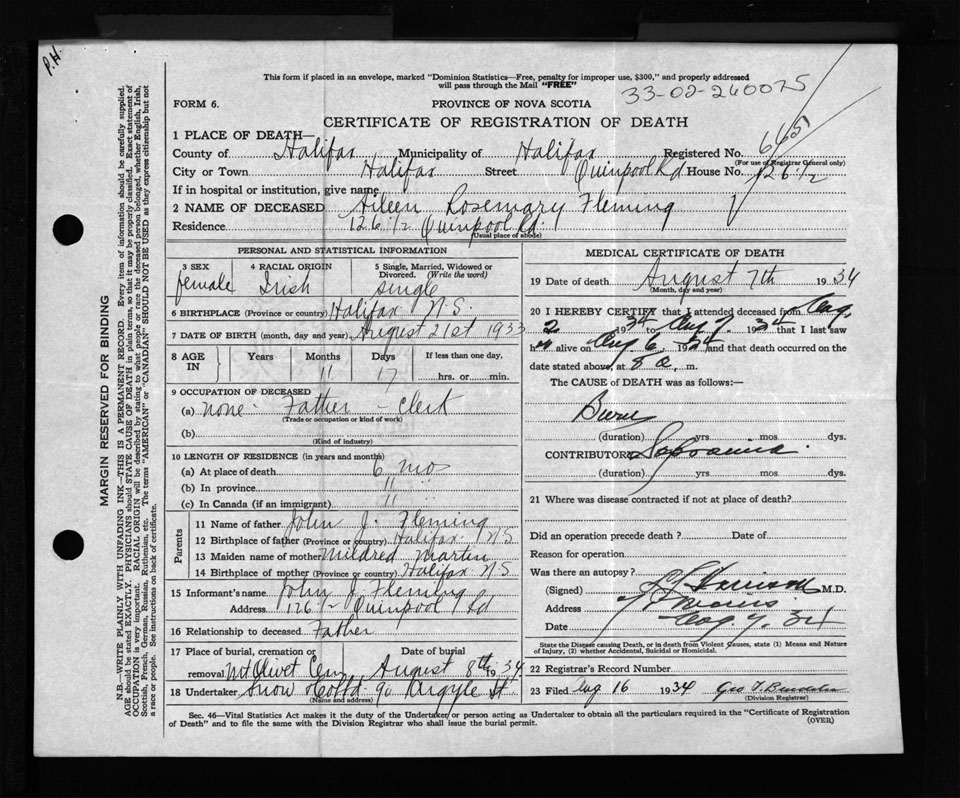 P.H.
This form if placed in an envelope, marked "Dominion Statistics—Free, penalty for improper use, $300," and properly addressed
will pass through the Mail "FREE"
33-02-260075
FORM 6. PROVINCE OF NOVA SCOTIA
CERTIFICATE OF REGISTRATION OF DEATH
1 PLACE OF DEATH—
County of Halifax Municipality of Halifax Registered No.
(For use of Registrar General only)
City or Town Halifax Street Quinpool Rd House No. 126 1/2
If in hospital or institution, give name
2 NAME OF DECEASED Aileen Rosemary Fleming
Residence 126 1/2 Quinpool Rd.
(Usual place of abode)
PERSONAL AND STATISTICAL INFORMATION
3 SEX 4 RACIAL ORIGIN 5 Single, Married, Widowed or
Divorced. (Write the word)
female Irish single
6 BIRTHPLACE (Province or country) Halifax N.S.
7 DATE OF BIRTH (month, day and year) August 21st 1933
8 AGE IN Years Months Days If less than one day,
11 17 hrs. or min.
9 OCCUPATION OF DECEASED
(a) none - Father - Clerk
(Trade or occupation or kind of work)
(b)
(Kind of industry)
10 LENGTH OF RESIDENCE (in years and months)
(a) At place of death 6 mos
(b) In province 11 "
(c) In Canada (if an immigrant) 11 "
Parents
11 Name of father John J. Fleming
12 Birthplace of father (Province or country) Halifax N S
13 Maiden name of mother Mildred Martin
14 Birthplace of mother (Province or country) Halifax N S
15 Informant's name John J. Fleming
Address 126 1/2 Quinpool Rd
16 Relationship to deceased Father
17 Place of burial, cremation or Date of burial
removal Mt Olivet Cem August 8th 1934
18 Undertaker Snow & Co Ltd 90 Argyle St
(Name and address)
MEDICAL CERTIFICATE OF DEATH
19 Date of death August 7th 1934
(Month, day and year)
20 I HEREBY CERTIFY that I attended deceased from Aug.
2 1934 to Aug 7 1934 that I last saw
h alive on Aug 6 1934 and that death occurred on the
date stated above, at 8 a. m.
The CAUSE of DEATH was as follows:—
(duration) yrs. mos. dys.
CONTRIBUTORY
(duration) yrs. mos. dys.
21 Where was disease contracted if not at place of death?
Did an operation precede death? Date of
Reason for operation
Was there an autopsy?
(Signed) M.D.
Address
Date Aug 7, 34
State the Disease causing Death, or in death from Violent Causes, state (1) Means and Nature
of Injury, (2) whether Accidental, Suicidal or Homicidal.
22 Registrar's Record Number
23 Filed Aug 16 1934 Geo
(Division Registrar)
Sec. 46—Vital Statistics Act makes it the duty of the Undertaker or person acting as Undertaker to obtain all the particulars required in the "Certificate of Registration
of Death" and to file the same with the Division Registrar who shall issue the burial permit. (OVER)
MARGIN RESERVED FOR BINDING
N.B.—WRITE PLAINLY WITH UNFADING INK—THIS IS A PERMANENT RECORD. Every item of information should be carefully supplied.
AGE should be stated EXACTLY. PHYSICIANS should STATE CAUSE OF DEATH in plain terms, so that it may be properly classified. Exact statement of
OCCUPATION is very important. RACIAL ORIGIN will be described by stating to what people or race the deceased person belonged, whether English, Irish,
Scottish, French, German, Russian, Ruthenian, etc. The terms "AMERICAN" or "CANADIAN" SHOULD NOT BE USED as they express citizenship but not
a race or people. See instructions on back of certificate.